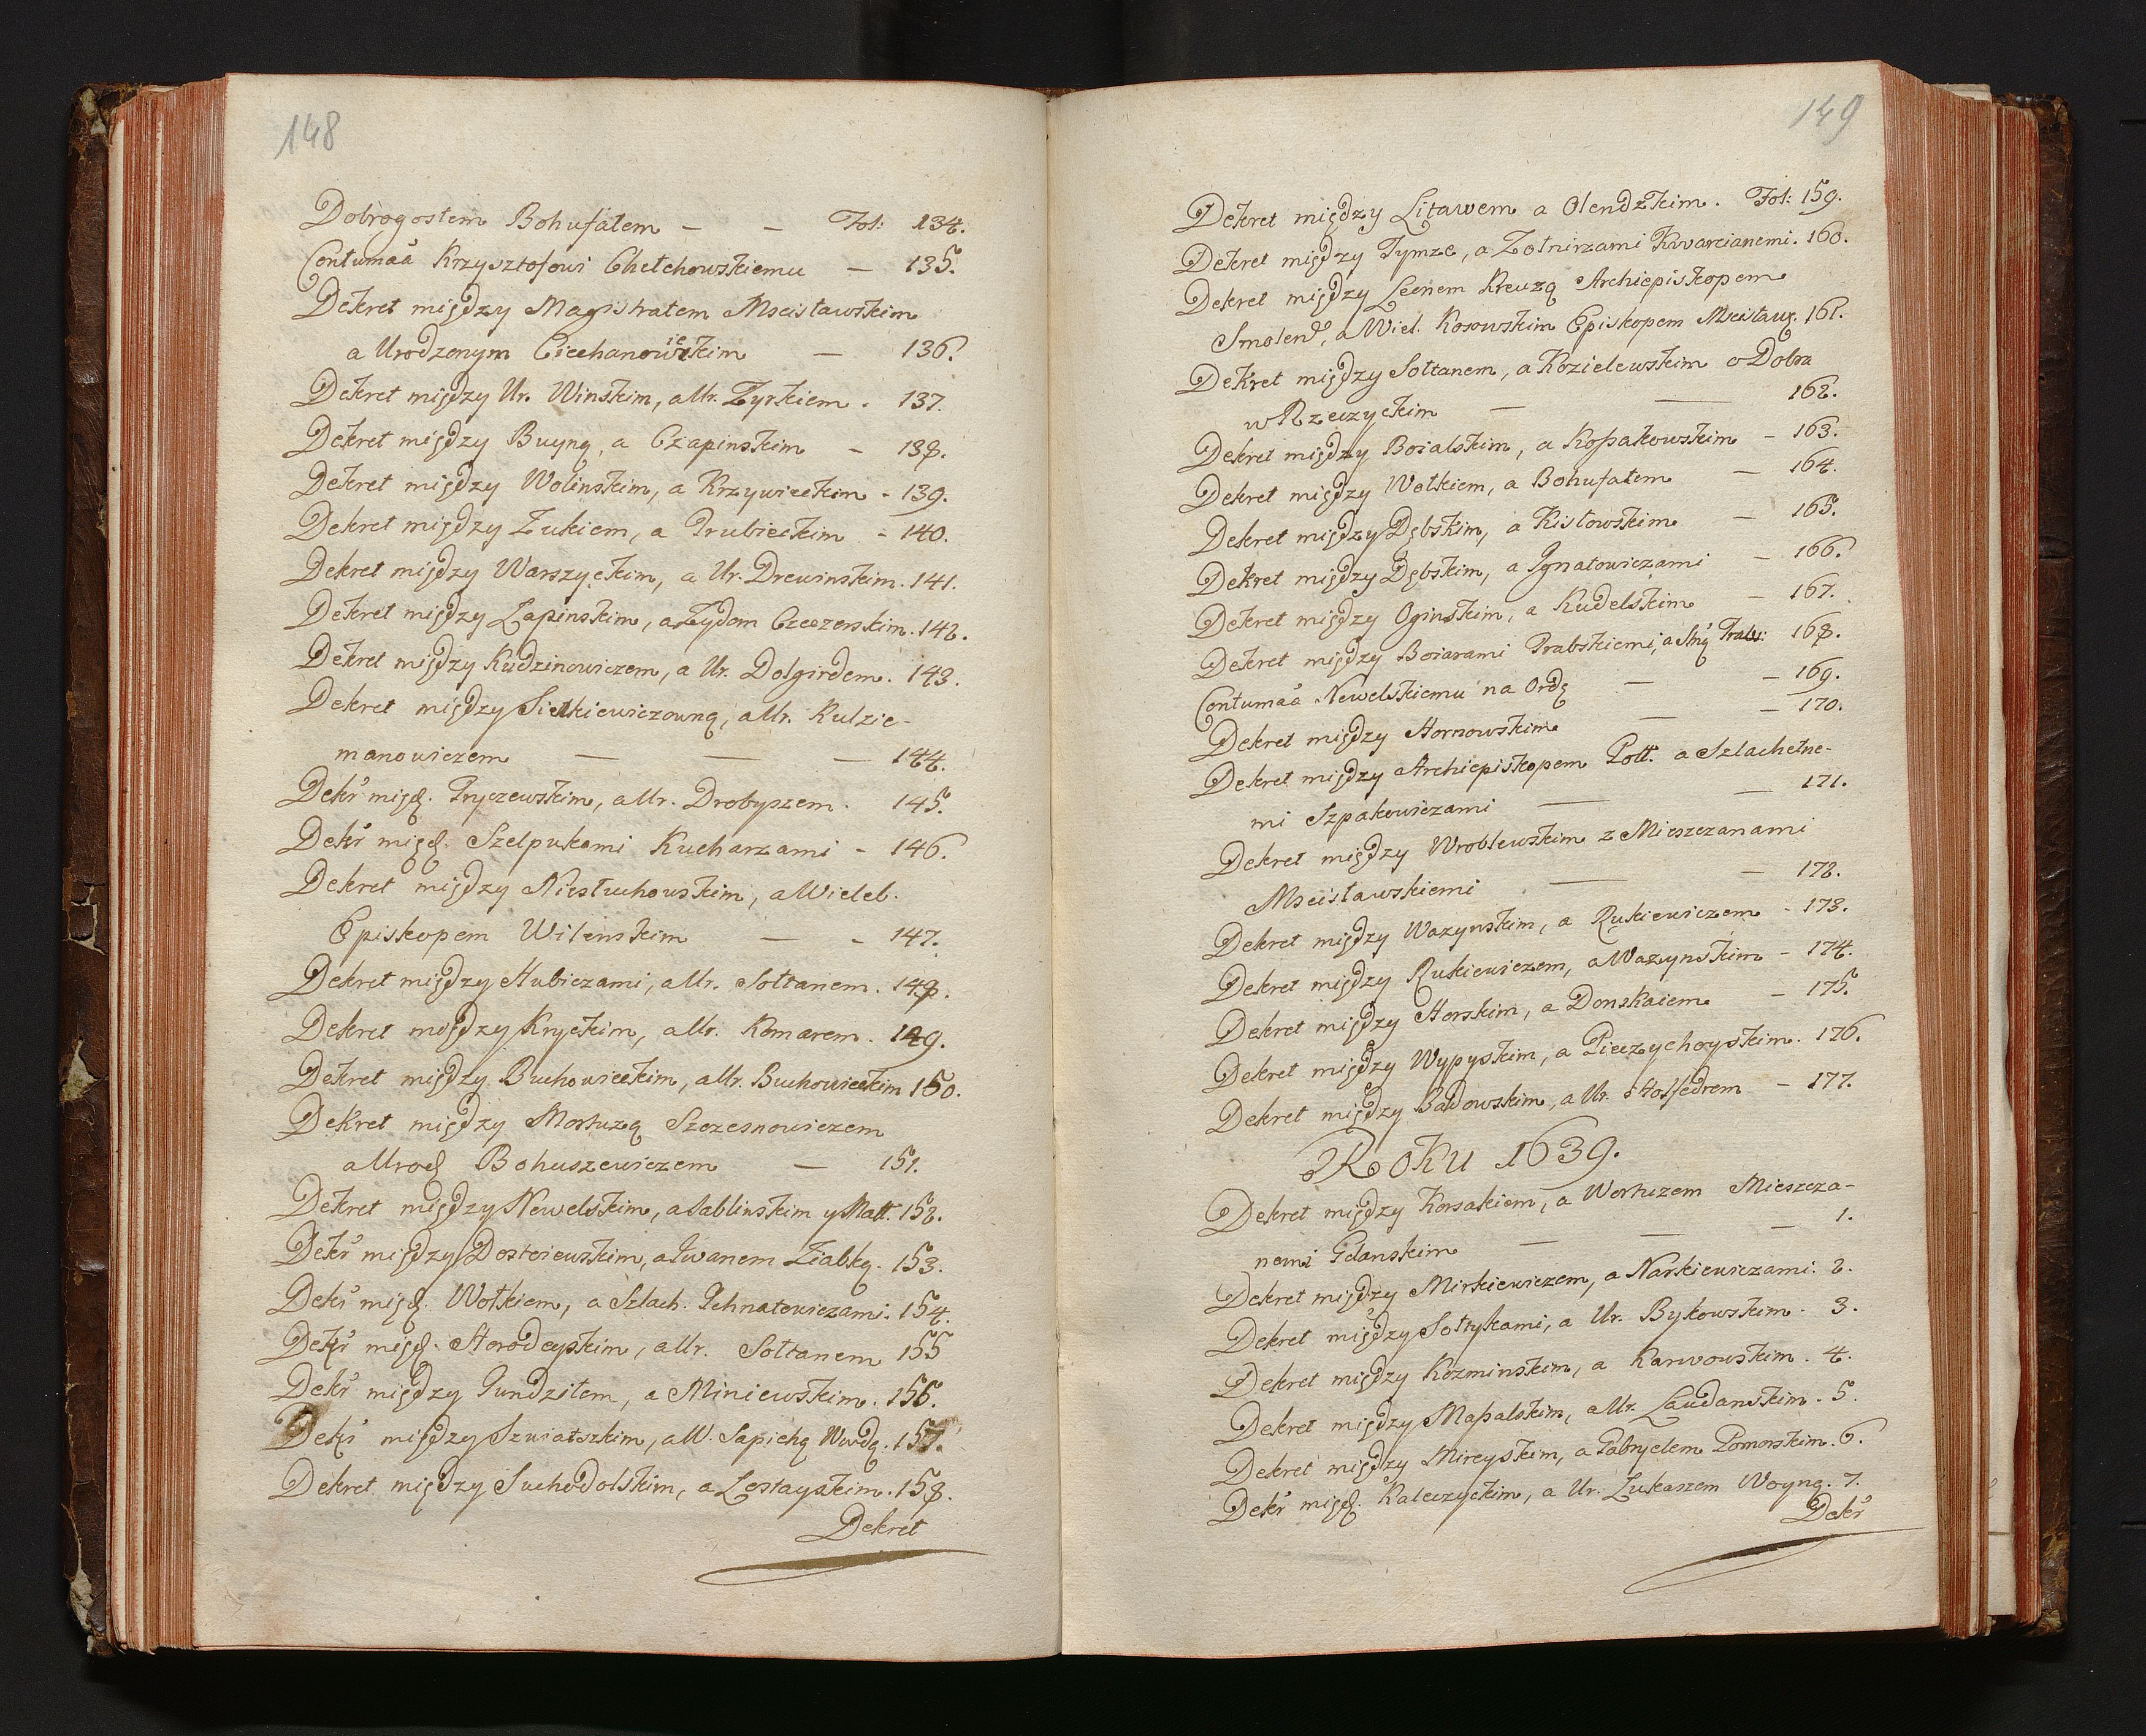 148
Dobrogostem Bohufałem – – Fol: 134.
Contumaa Krzysztofowi Chełchowskiemu – 135.
Dekret między Magistratem Mscisławskim
a Urodzonym Ciechanowieckim – 136.
Dekret między Ur. Winskim, a Ur. Zyrkiem. 137.
Dekret między Buyną, a Czapinskim – 138.
Dekret między Wolinskim, a Krzywieckim - 139.
Dekret między Zukiem, a Trubieckim - 140.
Dekret między Warszyckim, a Ur. Drewinskim. 141.
Dekret między Łapinskim, a Zydem Czeczerskim. 142.
Dekret między Kudzinowiczem, a Ur. Dolgirdem. 143.
Dekret między Sielkiewiczowną, a Ur. Kulzie-
manowiczem – – – 144.
Dekr̃ międ. Pryczewskim, a Ur. Drobyszem. 145.
Dekr̃ międ. Szelpukami Kucharzami - 146.
Dekret między Niesłuchowskim, a Wieleb.
Episkopem Wilenskim – - 147.
Dekret między Hubiczami, a Ur. Sołtanem. 148.
Dekret między Kryckim, a Ur. Komarem. 149.
Dekret między Buchowieckim, a Ur. Buchowieckim 150.
Dekret między Mortuzą Szczesnowiczem
a Urod Bohuszewiczem – 151.
Dekret między Newelskim, a Sablinskim y Małł. 152.
Dekr̃ między Dostoiewskim, a Iwanem Ziabką. 153.
Dekr̃ międ. Wołkiem, a Szlach. Jehnatewiczami. 154.
Dekr̃ międ. Horodeyskim, a Ur. Sołtanem 155
Dekr̃ między Gundziłem, a Miniewskim. 156.
Dekr̃ między Szwiatszkim, a W. Sapiehą Wwdą. 157.
Dekret między Suchodolskim, a Lestayskim. 158.
Dekret
149
Dekret między Litawem a Olendzkim. Fol: 159.
Dekret między Tymze, a Zołnirzami Kwarcianemi. 160.
Dekret między Leonem Kreuzą Archiepiskopem
Smolen, a Wiel. Kosowskim Episkopem Mscisław. 161.
Dekret między Sołtanem, a Kozielewskim o Dobra
w Rzeczyckim – – 162.
Dekret między Boialskim, a Kossakowskim – 163.
Dekret między Wołkiem, a Bohufałem – 164.
Dekret między Dębskim, a Kisłowskim – 165.
Dekret między Dębskim, a Ignatowiczami – 166.
Dekret między Oginskim, a Kudelskim – 167.
Dekret między Boiarami Trabskiemi, a Trabs: 168.
Contumaa Newelskiemu na Ordę – – 169.
Dekret między Hornowskim – – 170.
Dekret między Archiepiskopem Połł. a Szlachetne-
mi Szpakowiczami – – 171.
Dekret między Wroblewskim z Mieszczanami
Mscisławskiemi – – 172.
Dekret między Wazynskim, a Rukiewiczem - 173.
Dekret między Rukiewiczem, a Wazynskim – 174.
Dekret między Horskim, a Donskaiem – 175.
Dekret między Wypyskim, a Pieczychoyskim. 176.
Dekret między Sadowskim, a Ur. Holssedrem – 177.
Roku 1639.
Dekret między Korsakiem, a Wortuzem Mieszcza-
nemi Gdanskim – – – 1.
Dekret między Mirkiewiczem, a Narkiewiczami. 2.
Dekret między Sołtykami, a Ur. Bykowskim. 3.
Dekret między Kozminskim, a Karwowskim. 4.
Dekret między Massalskim, a Ur. Laudanskim. 5.
Dekret między Mireyskim, a Gabryelem Pomorskim. 6.
Dekr̃ międ. Kaleczyckim, a Ur. Łukaszem Woyną. 7.
Dekr̃